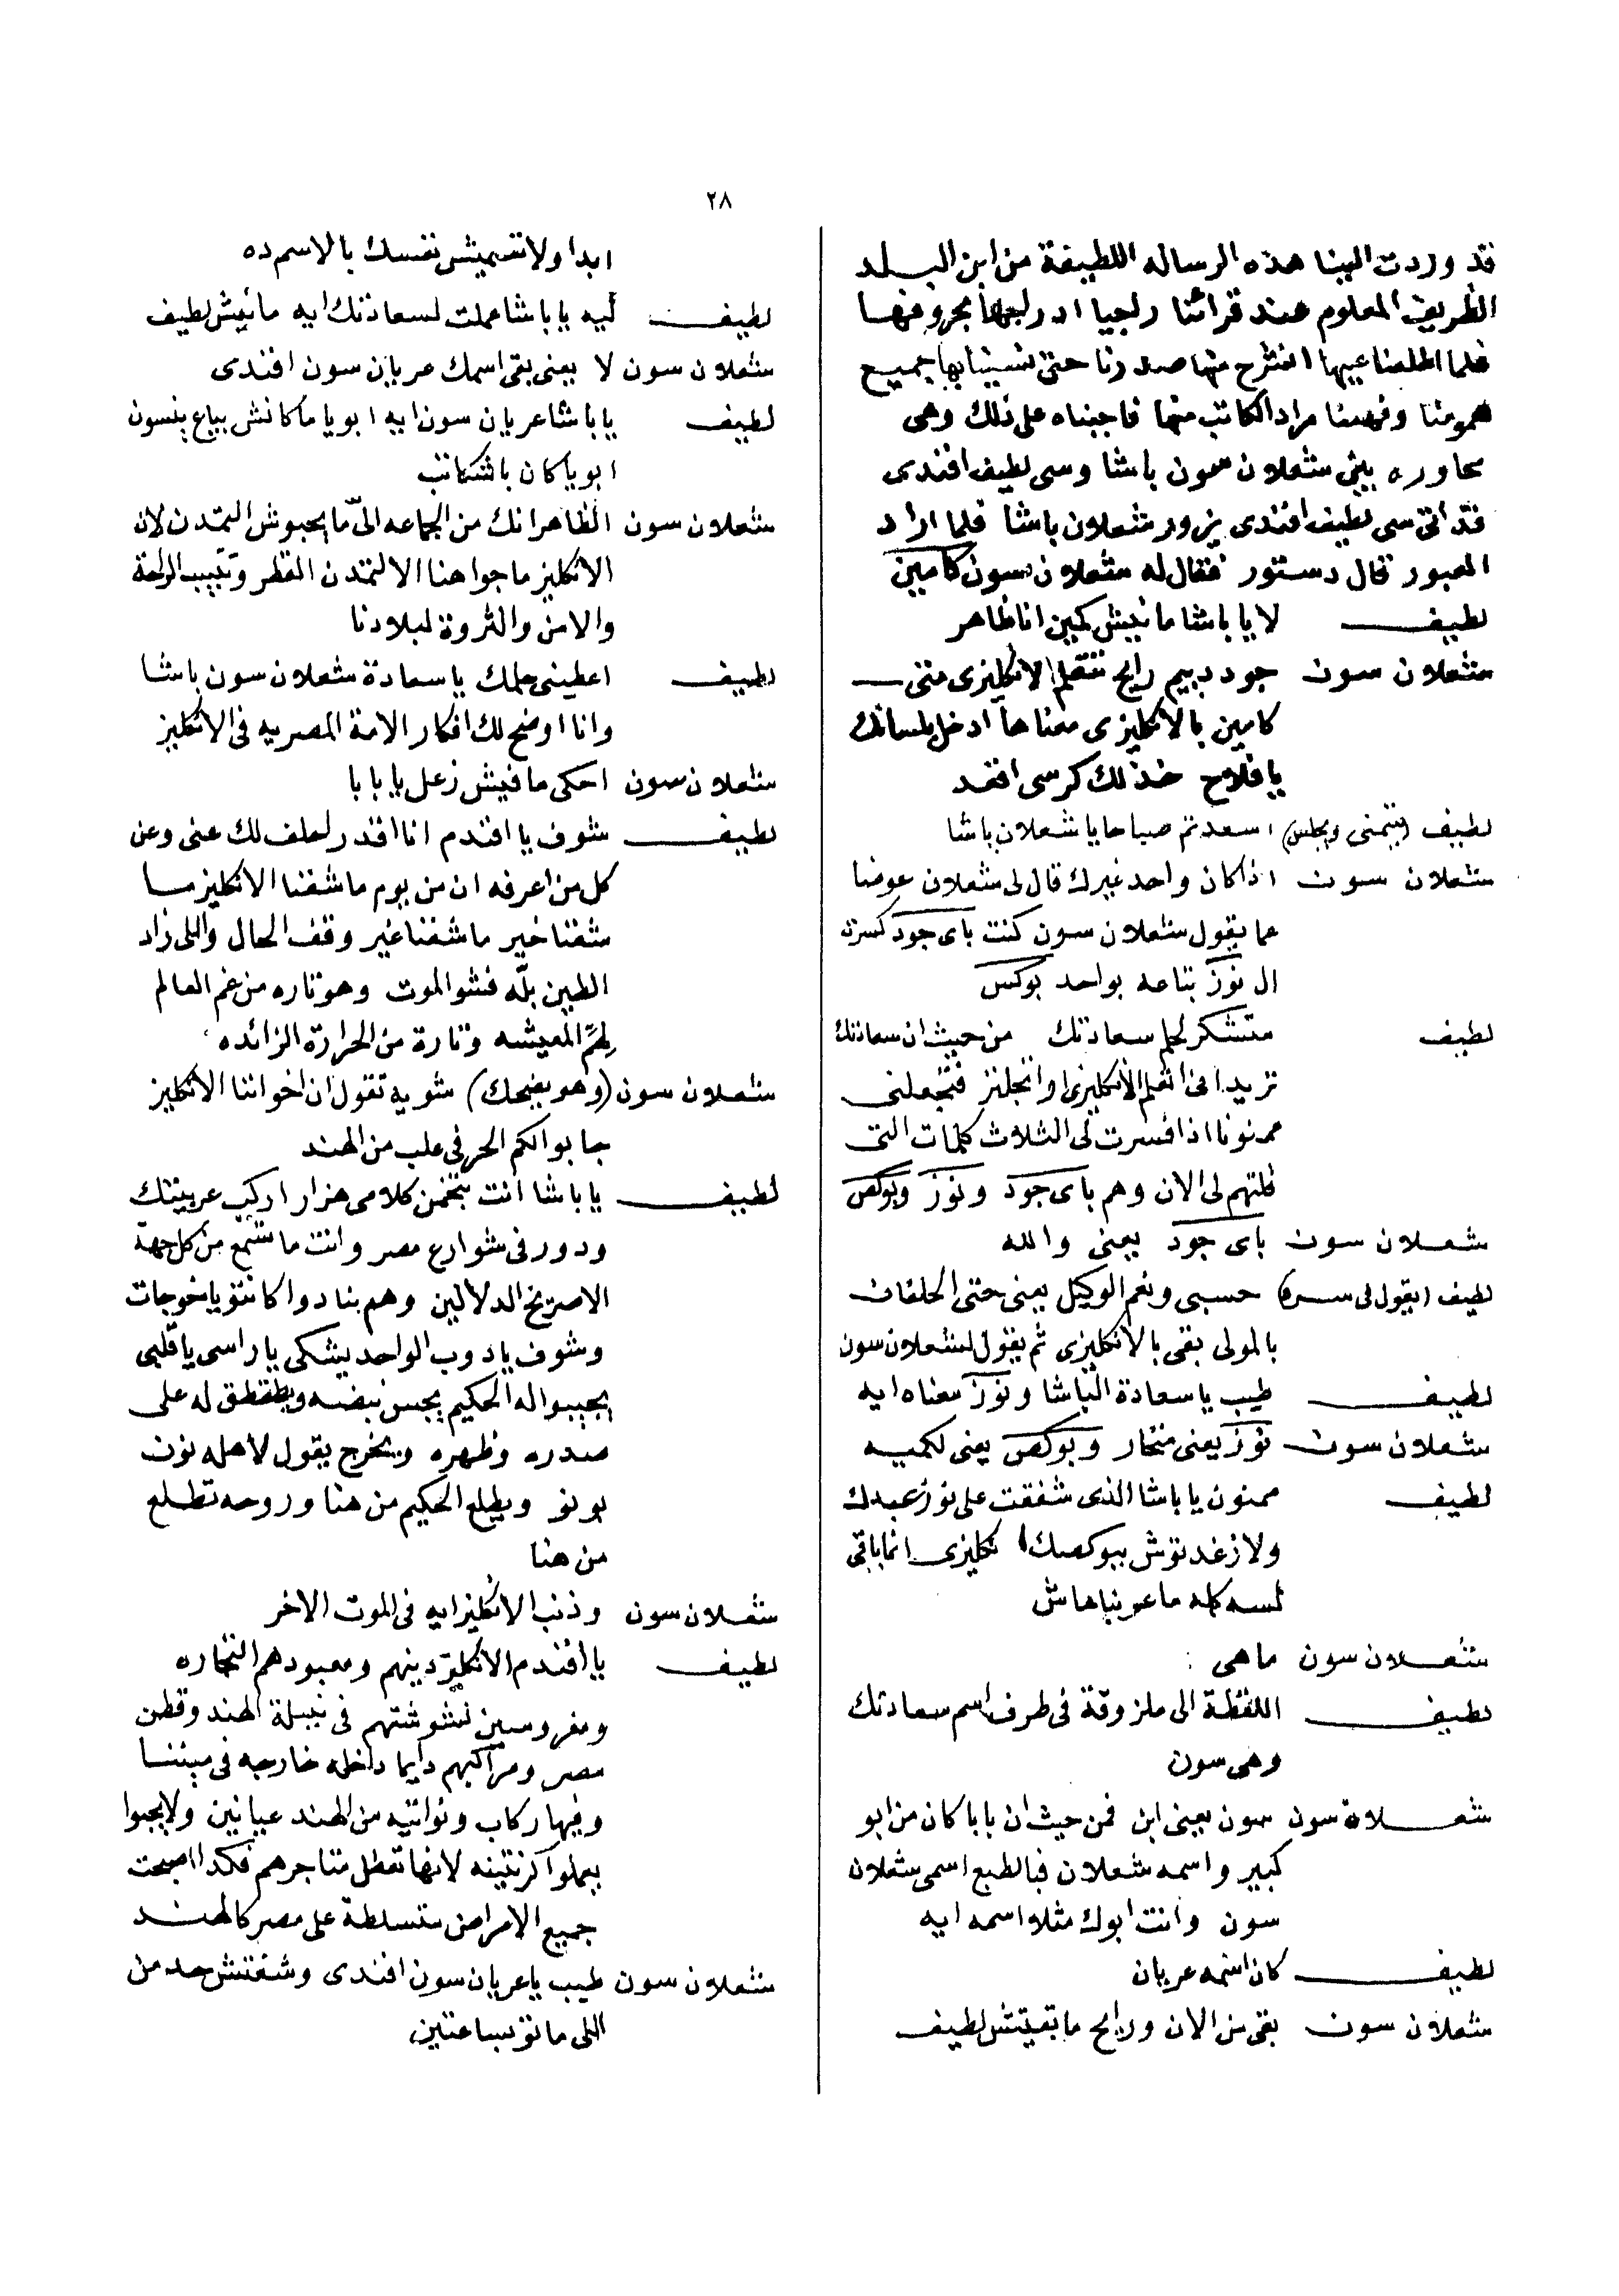 ٢٨
قد وردت الينا هذه الرساله اللطيفة من ابن البلد
الظريف المعلوم عند قرائنا راجيا ادراجها بحروفها
فلما اطلعنا عليها انشرح منها صدرنا حتى نسينا بها جميع
همومنا وفهمنا مراد الكاتب منها فاجبناه على ذلك وهى
محاوره بين شعلان سون باشا وسى لطيف افندى
قد اتى سى لطيف افندى يزور شعلان باشا فلما اراد
العبور قال دستور فقال له شعلان سون كامين
لطيف لا يا باشا مانيش كمين انا ظاهر
شعلان سون جود ديم رايح تتعلم الانكليزى منى
كامين بالانكليزى معناها ادخل بلسانك
يا فلاح خذ لك كرسى اقعد
لطيف (يتمنى ويجلس) اسعدتم صباحا يا شعلان باشا
شعلان سون اذا كان واحد غيرك قال لى شعلان عوضا
عما يقول شعلان سون كنت باى جود كسرت
ال نوز بتاعه بواحد بوكس
لطيف متشكر لحلم سعادتك من حيث ان سعادتك
تريد انى اتعلم الانكليزى او انجلنز فتجعلنى
ممنونا اذا فسرت لى الثلاث كلمات التى
قلتهم لى الان وهم باى جود ونوز وبوكس
شعلان سون باى جود يعنى والله
لطيف (يقول فى سره) حسبى ونعم الوكيل يعنى حتى الحلفان
بالمولى بقى بالانكليزى ثم يقول لشعلان سون
لطيف طيب يا سعادة الباشا ونوز معناه ايه
شعلان سون نوز يعنى منخار وبوكس يعنى لكميه
لطيف ممنون يا باشا الذى شفقت على نوز عبدك
ولا زغدتوش ببوكسك انكليزى انما باقى
لسه كلمه ما عرفناهاش
شعلان سون ماهى
لطيف اللفظة الى ملزوقة فى طرف اسم سعادتك
وهى سون
شعلان سون سون يعنى ابن فمن حيث ان بابا كان من ابو
كبير واسمه شعلان فبالطبع اسمى شعلان
سون وانت ابوك مثلا اسمه ايه
لطيف كان اسمه عريان
شعلان سون بقى من الان ورايح ما تبقيتش لطيف
ابدا ولا تسميش نفسك بالاسم ده
لطيف ليه يا باشا عملت لسعادتك ايه مانيش لطيف
شعلان سون لا يعنى بقى اسمك عريان سون افندى
لطيف يا باشا عريان سون ايه ابويا ما كانش بياع ينسون
ابويا كان باشكاتب
شعلان سون الظاهر انك من الجماعه الى ما يحبوش التمدن لان
الانكليز ما جوا هنا الا لتمدن القطر وتجيب الراحة
والامن والثروة لبلادنا
لطيف اعطينى حلمك يا سعادة شعلان سون باشا
وانا اوضح لك افكار الامة المصريه فى الانكليز
شعلان سون احكى ما فيش زعل يا بابا
لطيف شوف يا افندم انا اقدر احلف لك عنى وعن
كل من اعرفه ان من يوم ما شفنا الانكليز ما
شفنا خير ما شفنا غير وقف الحال واللى زاد
الطين بله فشو الموت وهو تاره من غم العالم
لهم المعيشه وتارة من الحرارة الزائده
شعلان سون (وهو يضحك) شويه تقول ان اخواننا الانكليز
جابوا لكم الحر فى علب من الهند
لطيف يا باشا انت بتخمن كلامى هزار اركب عربيتك
ودور فى شوارع مصر وانت ما تسمع من كل جهة
الاصريخ الدلالين وهم بنادوا كانتو يا خوجات
وشوف يا دوب الواحد يشكى يا راسى يا قلبى
يجيبوا له الحكيم يجس نبضه ويطقطق له على
صدره وظهره ويخرج يقول لاهله نون
بونو ويطلع الحكيم من هنا وروحه تطلع
من هنا
شعلان سون وذنب الانكليز ايه فى الموت الاخر
لطيف يا افندم الانكليز دينهم ومعبودهم التجاره
ومغروسين لشوشتهم فى نيلة الهند وقطن
مصر ومراكبهم دايما داخله خارجه فى مينتنا
وفيها ركاب ونواتيه من الهند عيانين ولا يحبوا
يعملوا كرنتينه لانها تعطل متاجرهم فكدا اصبحت
جميع الامراض متسلطة على مصر كالهند
شعلان سون طيب يا عريان سون افندى وشفتش حد من
اللى ماتو بساعتين